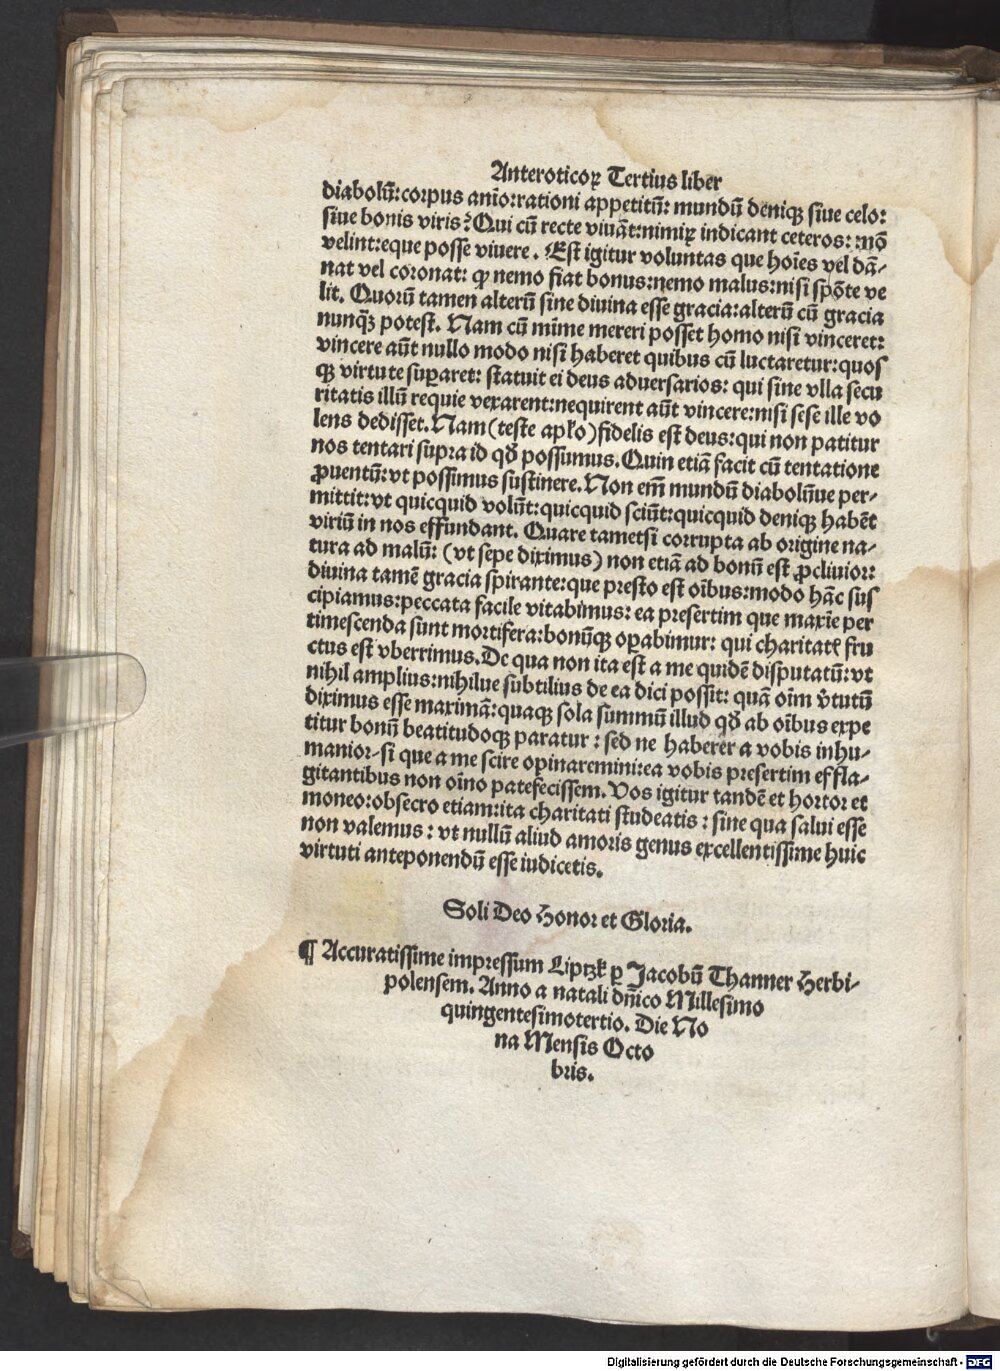 Anteroticoꝝ Tertius liber
diabolū: corpus anīo: rationi appetitū: mundū deniqꝫ siue celo:
siue bonis viris? Qui cū recte viuāt: nimiꝝ indicant ceteros: mō
velint: eque posse viuere. Est igitur voluntas que hoīes vel dā⸗
nat vel coronat: ꝙ nemo fiat bonus: nemo malus: nisi spōte ve
lit. Quorū tamen alterū sine diuina esse gracia: alterū cū gracia
nunqꝫ potest. Nam cū mīme mereri posset homo nisi vinceret:
vincere aūt nullo modo nisi haberet quibus cū luctaretur: quos
qꝫ virtute suꝑaret: statuit ei deus aduersarios: qui sine vlla secu
ritatis illū requie vexarent: nequirent aūt vincere: nisi sese ille vo
lens dedisset. Nam (teste apľo) fidelis est deus: qui non patitur
nos tentari supra id qđ possumus. Quin etiā facit cū tentatione
ꝓuentū: vt possimus sustinere. Non em̄ mundū diabolūue per⸗
mittit: vt quicquid volūt: quicquid sciūt: quicquid deniqꝫ habēt
viriū in nos effundant. Quare tametsi corrupta ab origine na⸗
tura ad malū: (vt sepe diximus) non etiā ad bonū est ꝓcliuior:
diuina tamē gracia spirante: que presto est oībus: modo hāc sus
cipiamus: peccata facile vitabimus: ea presertim que maxīe per
timescenda sunt mortifera: bonūqꝫ oꝑabimur: qui charitatē fru
ctus est vberrimus. De qua non ita est a me quidē disputatū: vt
nihil amplius: nihilue subtilius de ea dici possit: quā oīm v̄tutū
diximus esse maximā: quaqꝫ sola summū illud qđ ab oībus expe
titur bonū beatitudoqꝫ paratur: sed ne haberer a vobis inhu⸗
manior: si que a me scire opinaremini: ea vobis presertim effla⸗
gitantibus non oīno patefecissem. Vos igitur tandē et hortor et
moneo: obsecro etiam: ita charitati studeatis: sine qua salui esse
non valemus: vt nullū aliud amoris genus excellentissime huic
virtuti anteponendū esse iudicetis.
Soli Deo Honor et Gloria.
¶ Accuratissime impressum Liptzk ꝑ Jacobū Thanner Herbi⸗
polensem. Anno a natali dn̄ico Millesimo
quingentesimotertio. Die No
na Mensis Octo
bris.
Digitalisierung gefördert durch die Deutsche Forschungsgemeinschaft - DFG